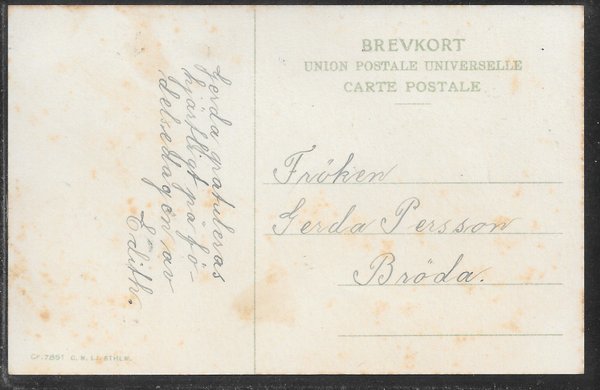 BREVKORT
UNION POSTALE UNIVERSELLE
CARTE POSTALE
Gerda gratuleras
hjärtligt på fö-
delsedagen av
Edith.
Fröken
Gerda Persson
Bröda.
Gr. 7851 C. N. L:s STHLM.